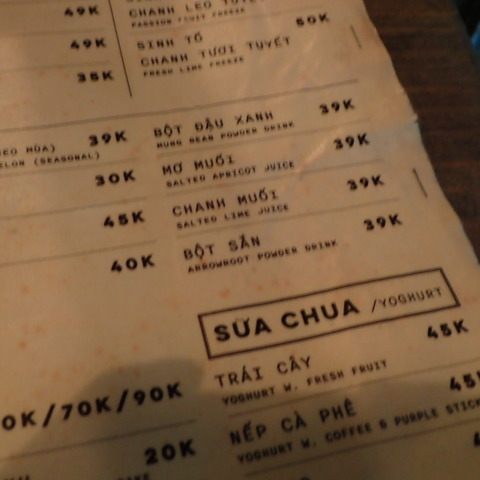 49K
CHANH LEO TUYẾT
PASSION FRUIT FREEZE
50K
49K
SINH TỐ
CHANH TƯƠI TUYẾT
FRESH LIME FREEZE
35K
39K
BỘT ĐẬU XANH
MUNG BEAN POWDER DRINK
39K
(SEASONAL)
30K
MƠ MUỐI
SALTED APRICOT JUICE
39K
45K
CHANH MUỐI
SALTED LIME JUICE
39K
40K
BỘT SẮN
ARROWROOT POWDER DRINK
39K
SỮA CHUA /YOGHURT
0K/70K/90K
TRÁI CÂY
YOGHURT W. FRESH FRUIT
45K
20K
NẾP CÀ PHÊ
YOGHURT W. COFFEE & PURPLE STICK
45